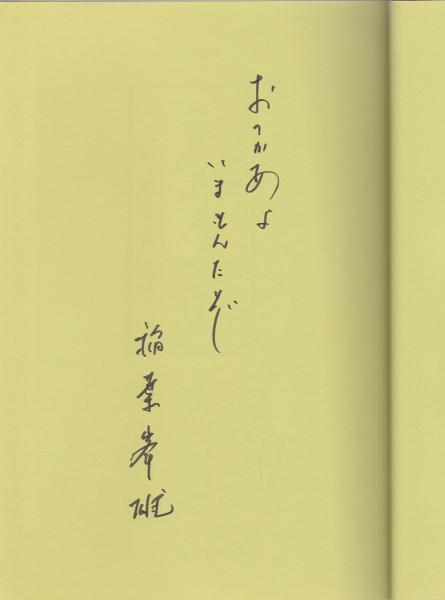 おっかあよ
いまもんたぞ
稲葉峯雄